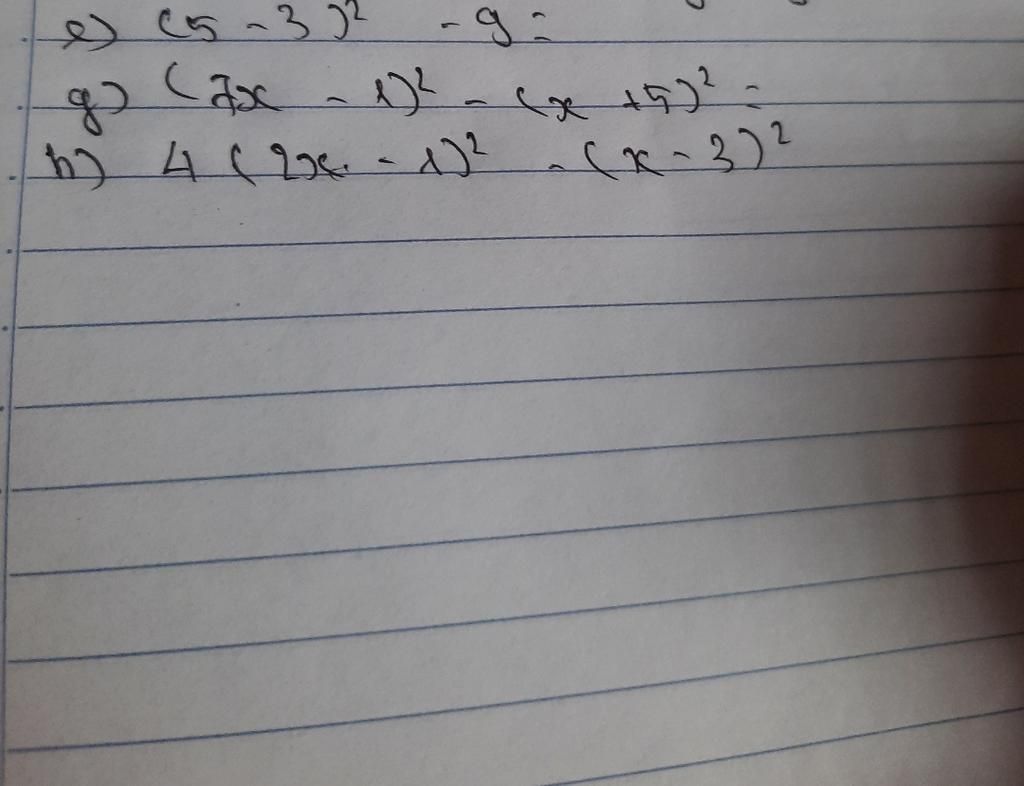 e) (5 - 3)² - 9 =
g) (7x - 1)² - (x + 5)² =
h) 4 (2x - 1)² - (x - 3)²